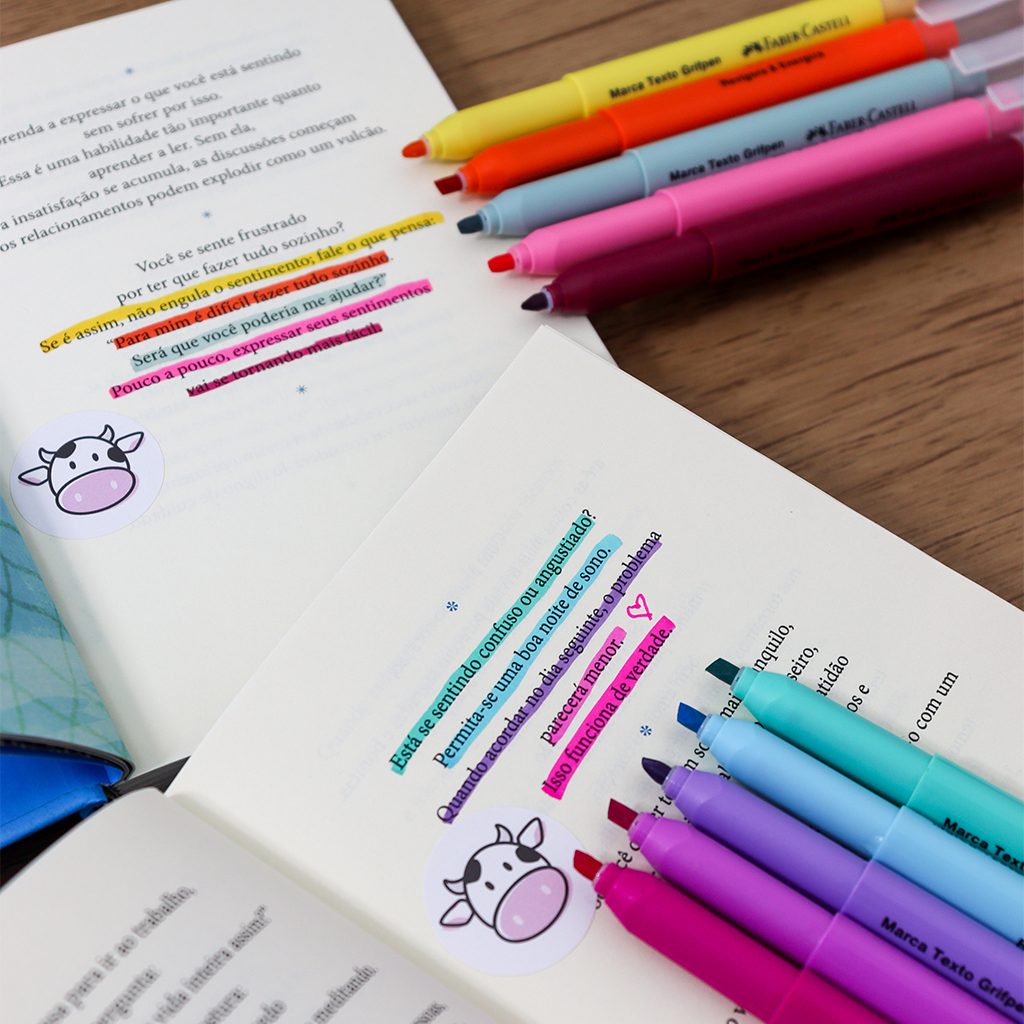 prenda a expressar o que você está sentindo
sem sofrer por isso.
Essa é uma habilidade tão importante quanto
aprender a ler. Sem ela,
a insatisfação se acumula, as discussões começam
os relacionamentos podem explodir como um vulcão.
Você se sente frustrado
por ter que fazer tudo sozinho?
Se é assim, não engula o sentimento; fale o que pensa:
“Para mim é difícil fazer tudo sozinho.
Será que você poderia me ajudar?”
Pouco a pouco, expressar seus sentimentos
vai se tornando mais fácil.
Marca Texto Grifpen FABER-CASTELL
Marca Texto Grifpen FABER-CASTELL
Está se sentindo confuso ou angustiado?
Permita-se uma boa noite de sono.
Quando acordar no dia seguinte, o problema
parecerá menor.
Isso funciona de verdade.
nquilo,
seiro,
atidão
os e
o com um
Marca Texto
Marca Texto Grifpen
sa para ir ao trabalho,
pergunta:
vida inteira assim?”
tura:
ndo meditando,